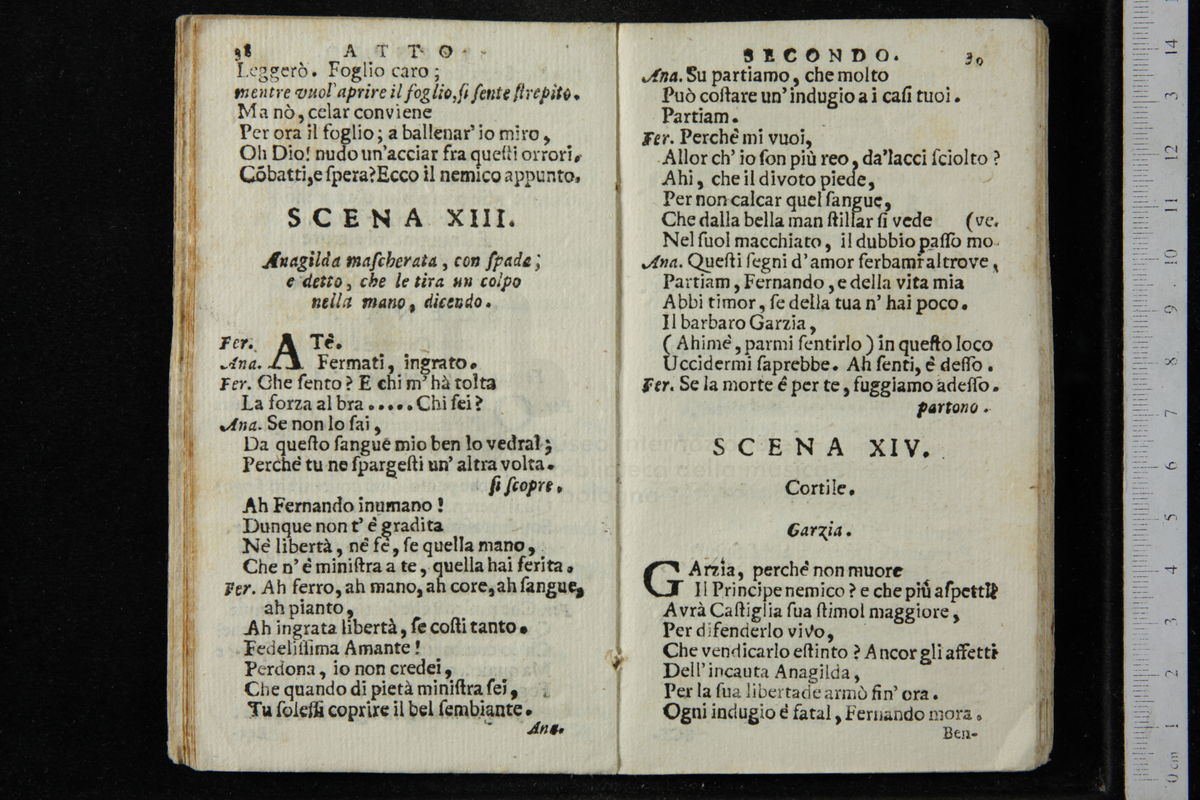 38 ATTO
Leggerò. Foglio caro;
mentre vuol'aprire il foglio,ſi ſente ſtrepito.
Ma nò, celar conviene
Per ora il foglio; a ballenar'io miro,
Oh Dio! nudo un'acciar fra queſti orrori.
Cõbatti,e ſpera?Ecco il nemico appunto.
SCENA XIII.
Anagilda maſcherata, con ſpada;
e detto, che le tira un colpo
nella mano, dicendo.
Fer. ATè.
Ana. Fermati, ingrato.
Fer. Che ſento? E chi m'hà tolta
La forza al bra.....Chi ſei?
Ana. Se non lo ſai,
Da queſto ſangue mio ben lo vedrai;
Perchè tu ne ſpargeſti un'altra volta.
ſi ſcopre.
Ah Fernando inumano!
Dunque non t'è gradita
Nè libertà, nè fè, ſe quella mano,
Che n'è miniſtra a te, quella hai ferita.
Fer. Ah ferro, ah mano, ah core, ah ſangue,
ah pianto,
Ah ingrata libertà, ſe coſti tanto.
Fedeliſſima Amante!
Perdona, io non credei,
Che quando di pietà miniſtra ſei,
Tu ſoleſſi coprire il bel ſembiante.
Ana.
SECONDO. 39
Ana. Su partiamo, che molto
Può coſtare un'indugio a i caſi tuoi.
Partiam.
Fer. Perchè mi vuoi,
Allor ch'io ſon più reo, da'lacci ſciolto?
Ahi, che il divoto piede,
Per non calcar quel ſangue,
Che dalla bella man ſtillar ſi vede (ve.
Nel ſuol macchiato, il dubbio paſſo mo-
Ana. Queſti ſegni d'amor ſerbami altrove,
Partiam, Fernando, e della vita mia
Abbi timor, ſe della tua n'hai poco.
Il barbaro Garzia,
(Ahimè, parmi ſentirlo) in queſto loco
Uccidermi ſaprebbe. Ah ſenti, è deſſo.
Fer. Se la morte è per te, fuggiamo adeſſo.
partono.
SCENA XIV.
Cortile.
Garzia.
GArzia, perchè non muore
Il Principe nemico? e che più aſpetti?
Avrà Caſtiglia ſua ſtimol maggiore,
Per difenderlo vivo,
Che vendicarlo eſtinto? Ancor gli affetti
Dell'incauta Anagilda,
Per la ſua libertade armò fin'ora.
Ogni indugio è fatal, Fernando mora.
Ben-
museo internazionale
biblioteca della musica
bologna
0 cm 1 2 3 4 5 6 7 8 9 10 11 12 3 14